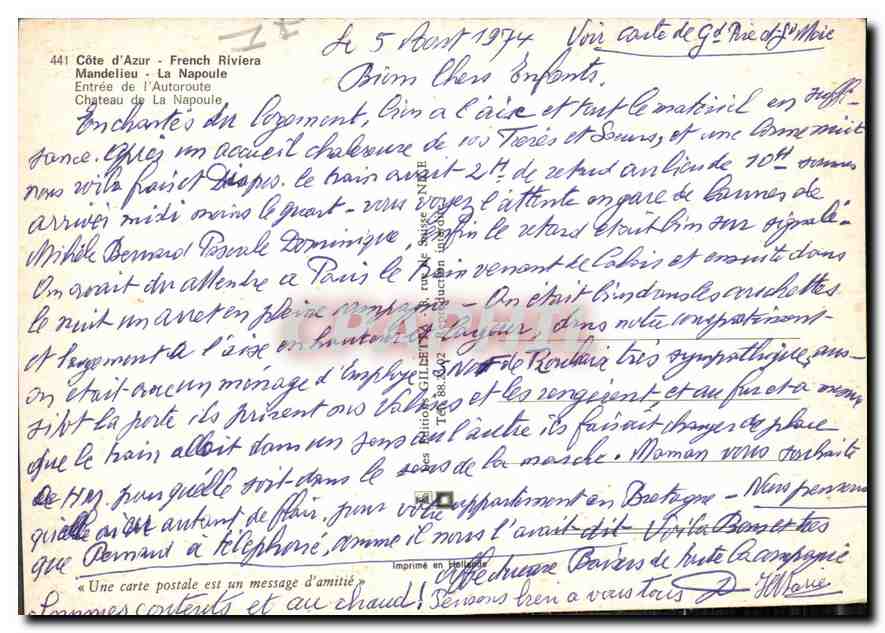 441 Côte d'Azur - French Riviera
Mandelieu - La Napoule
Entrée de l'Autoroute
Chateau de La Napoule
Le 5 Aout 1974 Voir carte de Gd Père et Gd Mère
Biens Chers Enfants.
Enchantés du logement, bien a l'aise et tout le matériel en suffi-
sance. Après un accueil chaleureuse de nos Frères et Soeurs, et une bonne nuit
nous voila frais et Dispos. le train avait 2H de retard au lieu de 10H sommes
arrivés midi moins le quart - vous voyez l'attente en gare de Cannes de
Mihèle Bernard Pascale Dominique, enfin le retard etait bien sur signalé -
On avait du attendre a Paris le train venant de Calais et ensuite dans
le nuit un arret en pleine campagne - On etait bien dans les couchettes
et logement a l'aise en hauteur et largeur, dans notre compartiment
on était avec un ménage d'Employé de Roubaix très sympathique, aus-
sitot la porte ils prirent nos Valises et les rengèrent et au fur et a mesure
que le train allait dans un sens ou l'autre ils faisait changer de place
de pour quélle soit dans le sens de la marche. Maman vous souhaite
qu'elle autant de flair, pour votre appartement en Bretagne - Nous pensons
que Bernard à téléphoné, comme il nous l'avait dit Voila Bons et tres
Affectueux Baisers de toute la compagnie
Sommes contents et au chaud! Pensons bien a vous tous
Les éditions GILLETTA - rue de Suisse - NICE
Tél. 88. 02 - Reproduction interdite
Imprimé en Hollande
« Une carte postale est un message d'amitié »
CPAPHIL